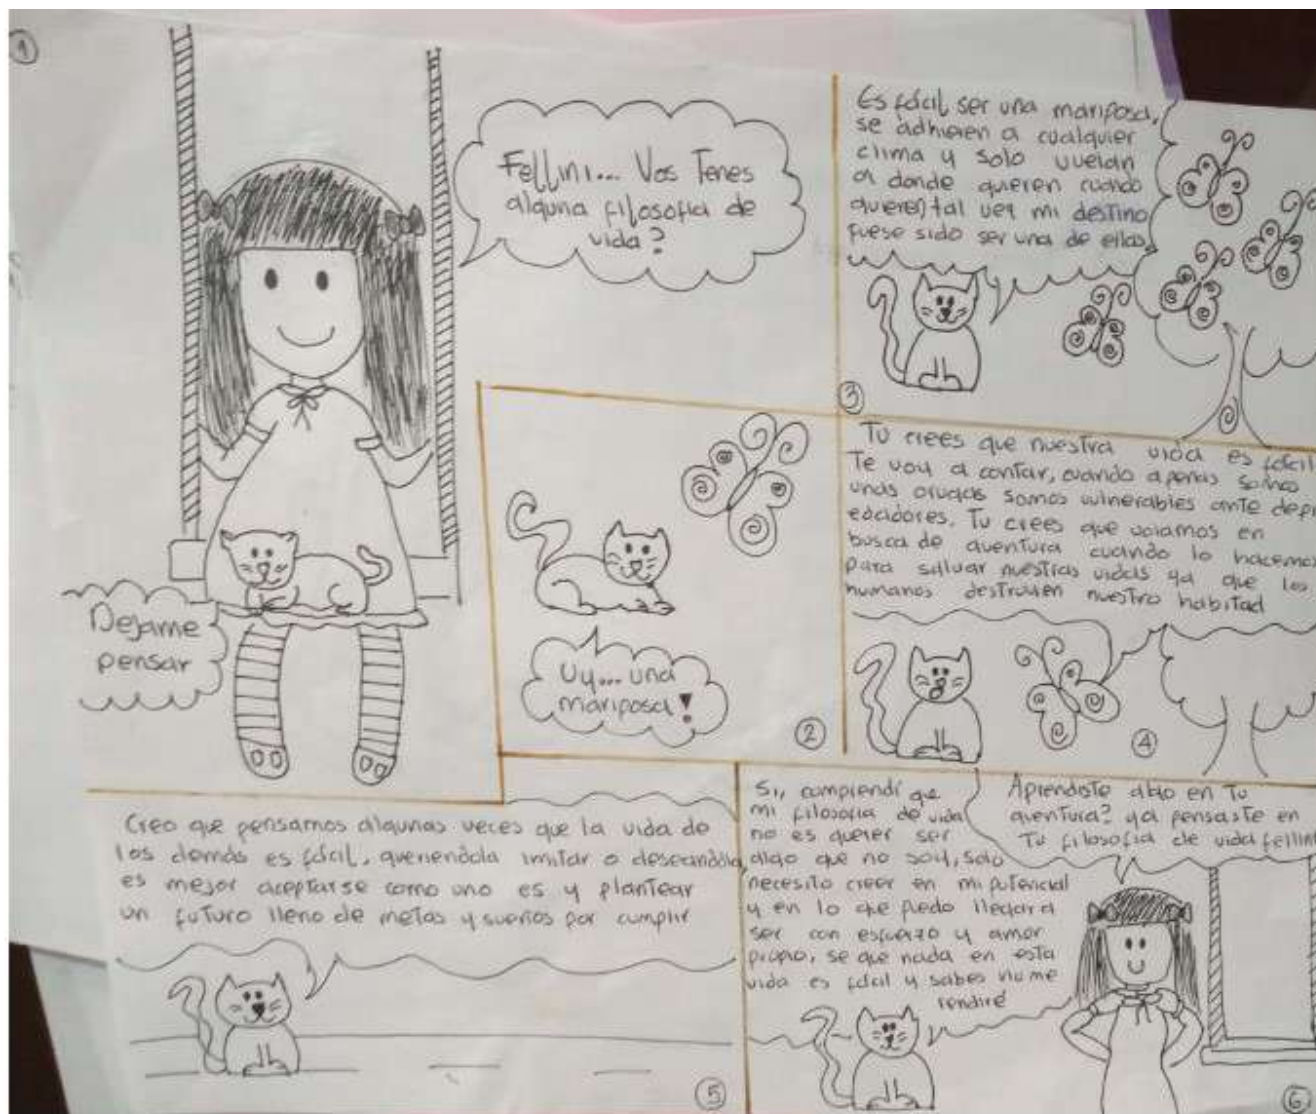 1
Fellini... Vos Tenes
alguna filosofia de
vida?
Dejame
pensar
Uy... una
mariposa!
2
Es fácil ser una mariposa,
se adhieren a cualquier
clima y solo vuelan
a donde quieren cuando
quieren, tal vez mi destino
fuese sido ser una de ellas
3
Tu crees que nuestra vida es fácil
Te voy a contar, cuando apenas somos
unas orugas somos vulnerables ante depr
edadores. Tu crees que volamos en
busca de aventura cuando lo hacemos
para salvar nuestras vidas ya que los
humanos destruien nuestro habitad
4
Creo que pensamos algunas veces que la vida de
los demás es fácil, queriendola imitar o deseandola,
es mejor aceptarse como uno es y plantear
un futuro lleno de metas y sueños por cumplir
5
Aprendiste algo en tu
aventura? ya pensaste en
Tu filosofia de vida fellini
Si, comprendí que
mi filosofia de vida
no es querer ser
algo que no soy, solo
necesito creer en mi potencial
y en lo que puedo llegar a
ser con esfuerzo y amor
propio, se que nada en esta
vida es fácil y sabes no me
rendiré
6